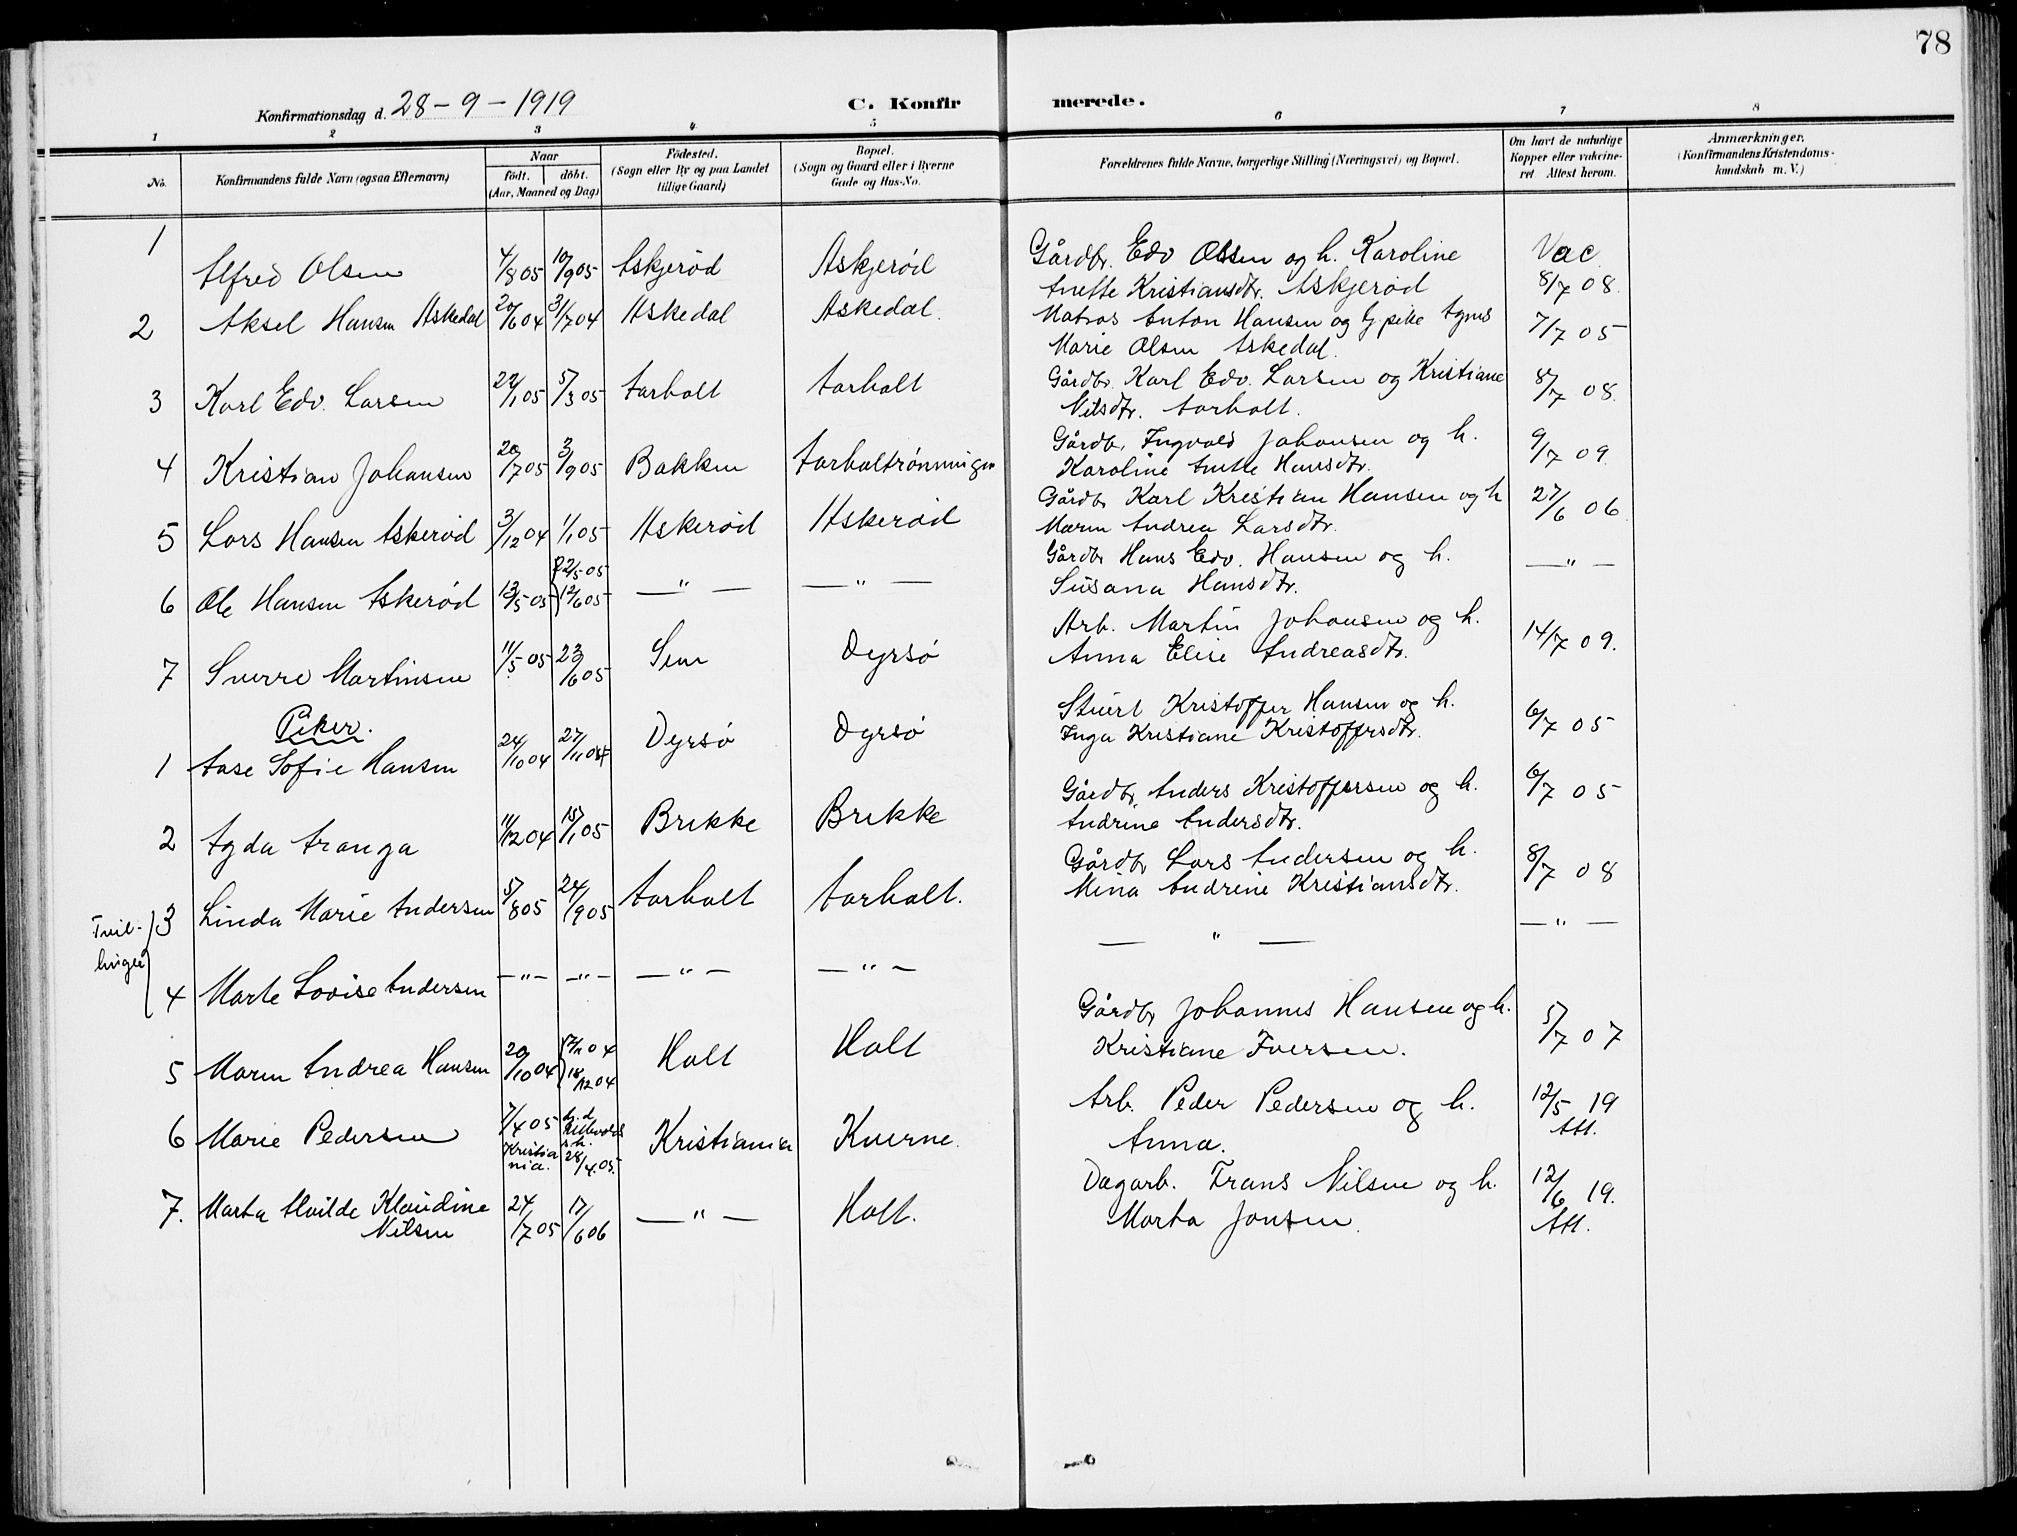 78
Konfirmationsdag d. 28-9-1919
C. Konfirmerede.
1 2 3 4 5 6 7 8
No.
Konfirmandens fulde Navn (ogsaa Efternavn)
Naar
födt. döbt.
(Aar, Maaned og Dag)
Födested.
(Sogn eller By og paa Landet
tillige Gaard)
Bopæl.
(Sogn og Gaard eller i Byerne
Gade og Hus-No.
Forældrenes fulde Navne, borgerlige Stilling (Næringsvei) og Bopæl.
Om havt de naturlige
Kopper eller vakcine-
ret Attest herom.
Anmærkninger.
(Konfirmandens Kristendoms-
kundskab m. V.)
1 Alfred Olsen 4/8 05 10/9 05 Askjerød Askjerød Gårdbr. Edv Olsen og h. Karoline Vac
Anette Kristiansdtr. Askjerød 8/7 08.
2 Aksel Hansen Askedal 20/6 04 31/7 04 Askedal Askedal. Matros Anton Hansen og pike Agnes 7/7 05
Marie Olsen Askedal.
3 Karl Edv. Larsen 22/1 05 5/3 05 Aarholt Aarholt Gårdbr. Karl Edv. Larsen og Kristiane 8/7 08.
Nilsdtr. Aarholt.
4 Kristian Johansen 20/7 05 3/9 05 Bakken Aarholtrønningen Gårdbr. Ingvald Johansen og h. 9/7 09.
Karoline Anette Hansdtr.
5 Lars Hansen Askerød 3/12 04 1/1 05 Askerød Askerød Gårdbr Karl Kristian Hansen og h 27/6 06
Maren Andrea Larsdtr.
6 Ole Hansen Askerød 13/5 05 22/5 05 — " — — " — Gårdbr Hans Edv. Hansen og h. — " —
12/6 05 Susana Hansdtr.
7 Sverre Martinsen 11/5 05 23/6 05 Sem Dyrsø Arb. Martin Johansen og h. 14/7 09.
Anna Elise Andreasdtr.
Piker.
1 Aase Sofie Hansen 24/10 04 27/11 04 Dyrsø Dyrsø Stuert Kristoffer Hansen og h. 6/7 05
Inga Kristiane Kristoffersdtr.
2 Agda Aranga 11/12 04 15/1 05 Brekke Brekke Gårdbr Anders Kristoffersen og h. 6/7 05
Andrine Andersdtr.
Tvil-
linger
3 Linda Marie Andersen 5/8 05 24/9 05 Aarholt Aarholt. Gårdbr Lars Andersen og h. 8/7 08
Mina Andrine Kristiansdtr.
4 Marte Lovise Andersen — " — — " — — " — — " — — " — — " —
5 Maren Andrea Hansen 20/10 04 04 Holt Holt Gårdbr Johannes Hansen og h. 5/7 07
18/12 04 Kristiane Iversen.
6 Marie Pedersen 7/4 05 Kristiania Kverne. Arb. Peder Pedersen og h. 12/5 19
Kristia
nia. 28/4.05. Anna. Att.
7. Marta Alvilde Klaudine 24/7 05 17/6 06 — " — Holt. Dagarb. Frans Nilsen og h. 12/6 19.
Nilsen Marta Jonsen. Att.